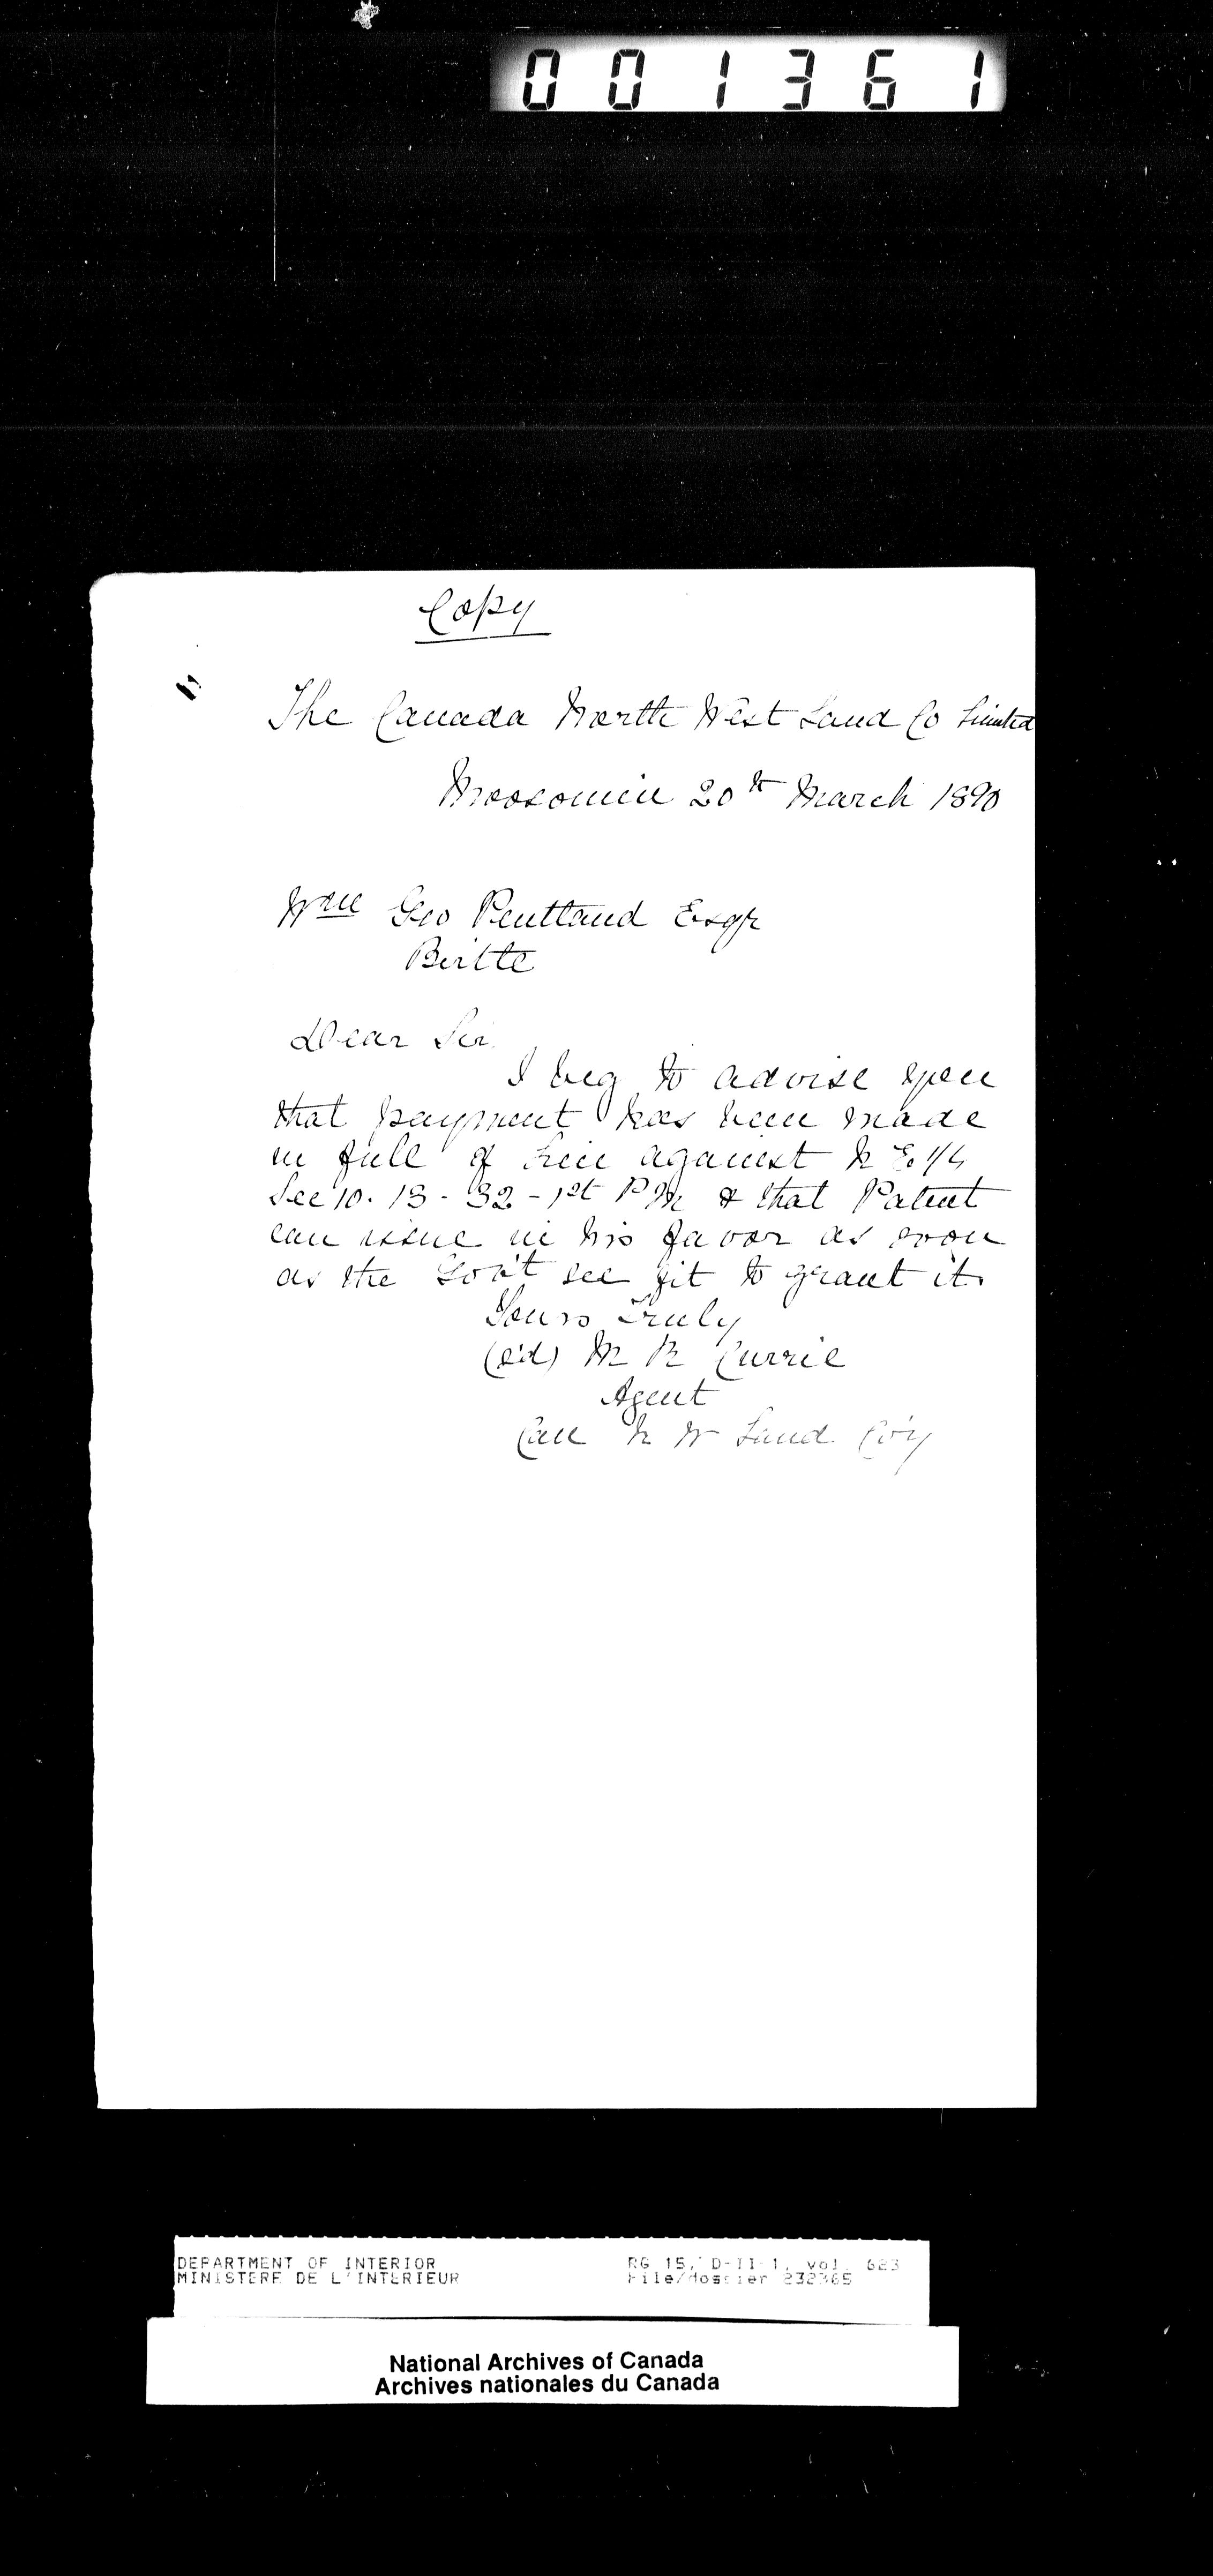 001361
Copy
The Canada North West Land Co Limited
Moosomin 20th March 1890
Wm Geo Pentland Esqr
Birtle
Dear Sir
I beg to advise you
that payment has been made
in full of lien against N E 1/4
Sec 10. 13 - 32 - 1st P M & that Patent
can issue in his favor as soon
as the Gov't see fit to grant it.
Yours Truly
(s'd) M R Currie
Agent
Can N W Land Co'y
DEPARTMENT OF INTERIOR RG 15, D-II-1, vol. 623
MINISTERE DE L'INTERIEUR File/dossier 232365
National Archives of Canada
Archives nationales du Canada